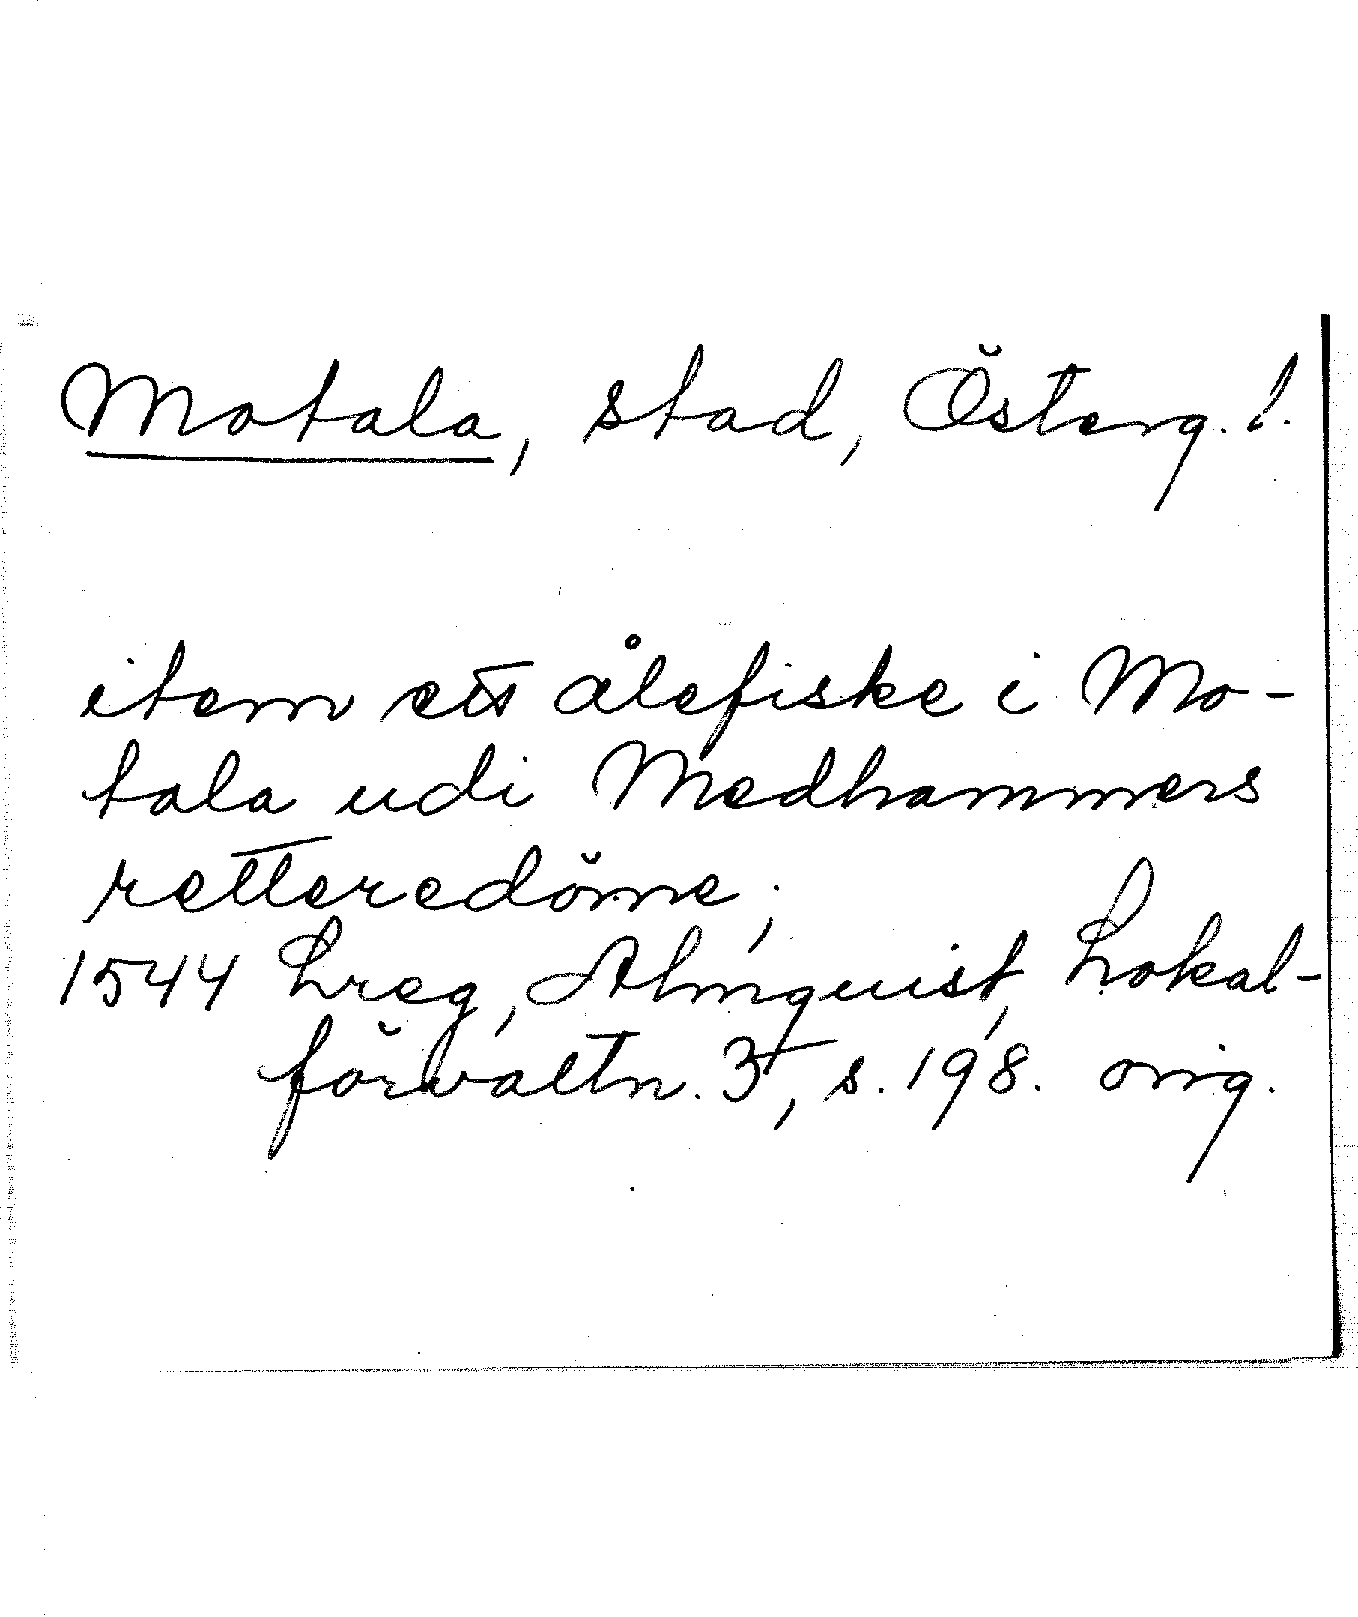 Motala, stad, Österg. l.
item ett ålefiske i Mo-
tala udi Medhammers
retteredöme;
1544 Lreg, Almquist, Lokal-
förvaltn. 3, s. 198. orig.